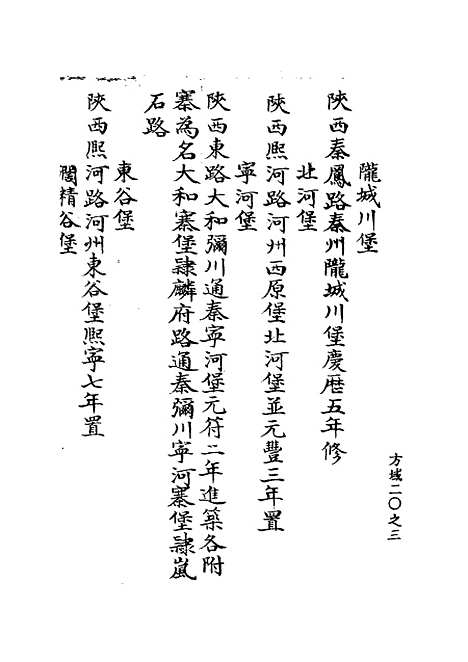 隴城川堡
陝西秦鳳路秦州隴城川堡慶曆五年修
北河堡
陝西熈河路河州西原堡北河堡並元豐三年置
寜河堡
陝西東路大和彌川通秦寜河堡元符二年進築各附
寨為名大和寨堡隷麟府路通秦彌川寜河寨堡隷嵐
石路
東谷堡
陝西熈河路河州東谷堡熈寜七年置
閻精谷堡
方域二〇之三